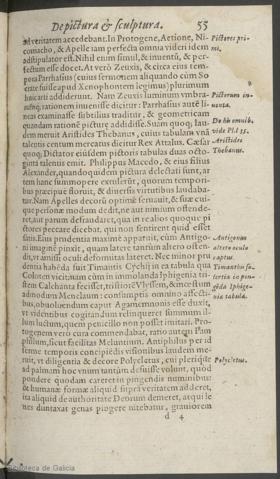 De pictura & sculptura. 53
ad veritatem accedebant. In Protogene, Aetione, Ni-
comacho, & Apelle iam perfecta omnia videri idem
adstipulator est. Nihil enim simul, & inuentũ, & per-
fectum esse docet. At verò Zeuxis, & circa eius tem-
pora Parrhasius (cuius sermonem aliquando cùm So
crate fuisse apud Xenophontem legimus) plurimum
huic arti addiderunt. Nam Zeuxis luminum vmbra-
rumq; rationem inuenisse dicitur: Parrhasius autē li-
neas examinasse subtilius traditur, & geometricam
quandam ratione picturæ addidisse. Suam quoq; lau-
dem meruit Aristides Thebanus, cuius tabulam vnā
talentis centum mercatus dicitur Rex Attalus. Cæsar
quoq; Dictator eiusdem pictoris tabulas duas octo-
ginta talentis emit. Philippus Macedo, & eius filius
Alexander, quandoquidem pictura delectati sunt, ar
tem hanc summopere extulerũt, quorum tempori-
bus præcipuè floruit, & diuersis virtutibus laudaba-
tur. Nam Apelles decorũ optimè seruauit, & suæ cui-
que personæ modum dedit, ne aut nimium ostende-
ret, aut parum defraudaret, qua in re alios quoque pi
ctores peccare dicebat, qui non sentirent quid esset
satis. Eius prudentia maximè apparuit, cùm Antigo-
ni imaginē pinxit, quam latere tantùm altero osten-
dit, vt amissi oculi deformitas lateret. Nec minor pru
dentia habita fuit Timantis Cythnij in ea tabula qua
Colotem vicit, nam cùm in immolanda Iphigenia tri-
stem Calchanta fecisset, tristiorē Vlyssem, & mœstum
admodum Menelaum: consumptis omnino affecti-
bus, obuoluendum caput Agamemnonis esse duxit,
vt videntibus cogitandum relinqueret summum il-
lum luctum, quem penicillo non posset imitari. Pro-
togenem verò cura commendabat, ratio autem Pam
philum, sicut facilitas Meluntium. Antiphilus per id
ferme temporis concipiēdis visionibus laudem me-
ruit, vt diligentia & decore Polycletus, cui plerique
ad palmam hoc vnum tantùm defuisse volunt, quòd
pondere quodam careret in pingendis numinibus:
& humanæ formæ aliquid supra veritatem adderet,
ita aliquid de authoritate Deorum demeret, atqui le
nes duntaxat genas pingere nitebatur, grauiorem
d 4
Pictores pri-
mi.
Pictorum in-
uenta.
De his omnib.
vide Pl. l 35.
Aristides
Thebanus.
Antigonus
altero oculo
captus.
Polycletus.
Biblioteca de Galicia